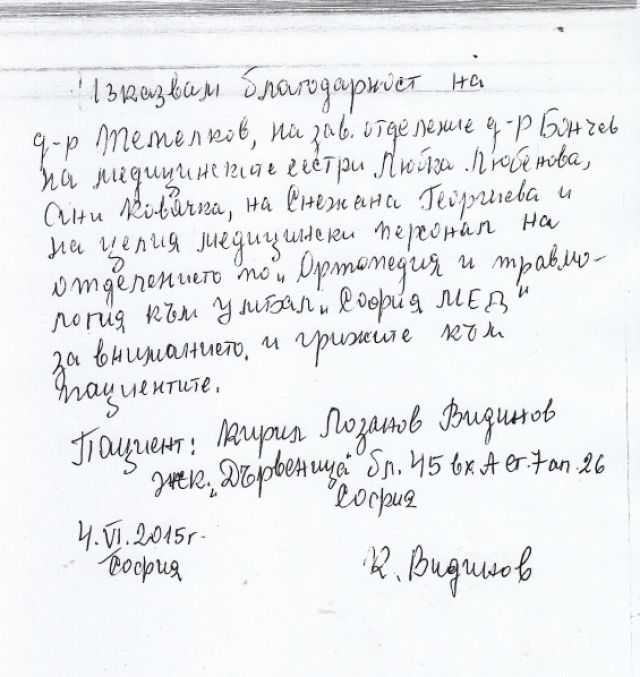 Изказвам благодарност на
д-р Темелков, на зав. отделение д-р Бончев
на медицинските сестри Любка Любенова,
Ани Ковачка, на Снежана Георгиева и
на целия медицински персонал на
отделението по „Ортопедия и травмо-
логия към УМБАЛ „София МЕД"
за вниманието и грижите към
пациентите.
Пациент: Кирил Лозанов Видинов
жк. „Дървеница" бл. 45 вх А ет. 7 ап. 26
София
4.VI.2015г.
София
К. Видинов